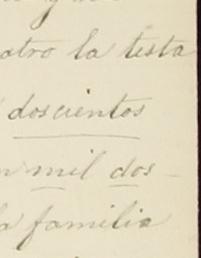 atro la testa
doscientos
n mil dos-
la familia